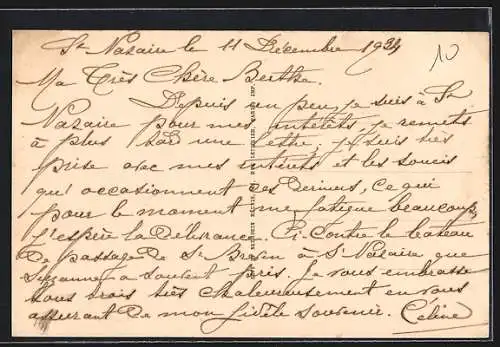 St Nazaire le 11 Décembre 1934
10
Ma Très Chère Berthe.
Depuis un peu, je suis à St
Nazaire pour mes intérêts, je remets
à plus tard une lettre, je suis très
prise avec mes intérêts et les soucis
qu'occasionnent ces derniers, ce qui
pour le moment me fatigue beaucoup,
j'espère la Délivrance. Ci-contre le bateau
de passage de St Brevin à St Nazaire que
Suzanne a souvent pris. Je vous embrasse
tous trois très chaleureusement en vous
assurant de mon fidèle souvenir. Céline